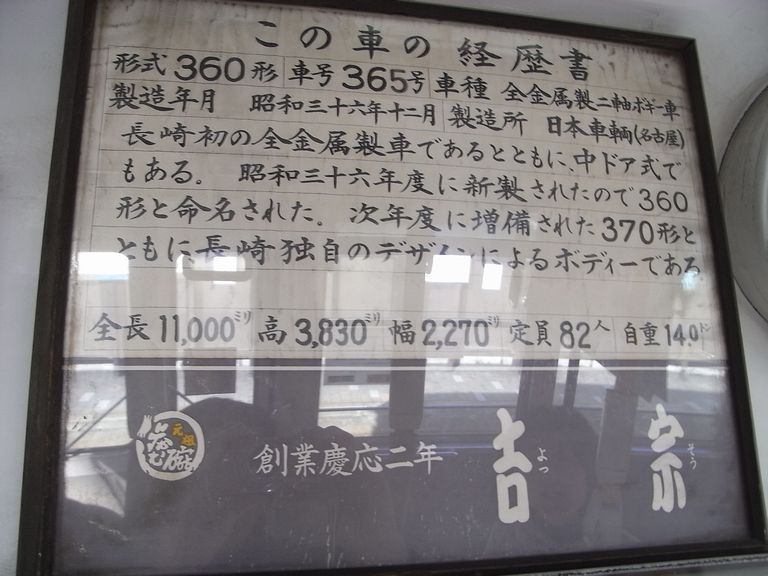 この車の経歴書
形式 360形 車号 365号 車種 全金属製二軸ボギー車
製造年月 昭和三十六年十二月 製造所 日本車輌(名古屋)
長崎初の全金属製車であるとともに、中ドア式で
もある。 昭和三十六年度に新製されたので360
形と命名された。次年度に増備された370形と
ともに長崎独自のデザインによるボディーである
全長 11,000ミリ 高 3,830ミリ 幅 2,270ミリ 定員 82人 自重 14.0トン
元祖 茶碗むし
創業慶応二年
吉宗
よっ そう